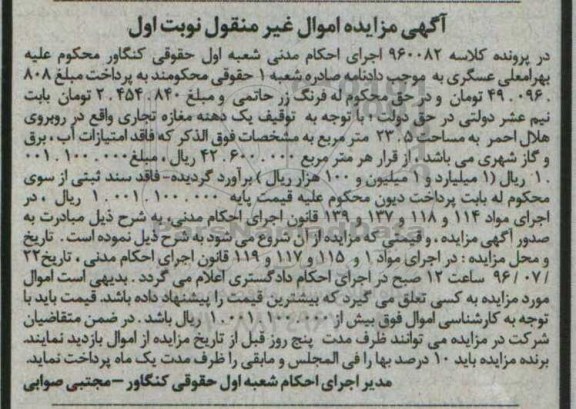 آگهی مزایده اموال غیر منقول نوبت اول
در پرونده کلاسه ۹۶۰۰۸۲ اجرای احکام مدنی شعبه اول حقوقی کنگاور محکوم علیه
بهرامعلی عسگری به موجب دادنامه صادره شعبه ۱ حقوقی محکومند به پرداخت مبلغ ۸۰۸
.۰۹۶ .۴۹ تومان و در حق محکوم له فرنگ زر حاتمی و مبلغ ۸۴۰ .۴۵۴ .۲ تومان بابت
نیم عشر دولتی در حق دولت ؛ با توجه به توقیف یک دهنه مغازه تجاری واقع در روبروی
هلال احمر به مساحت ۵. ۲۳ متر مربع به مشخصات فوق الذکر که فاقد امتیازات آب ، برق
و گاز شهری می باشد ، از قرار هر متر مربع ۰۰۰ .۶۰۰ .۴۲ ریال ، مبلغ ۰۰۰ .۱۰۰ .۰۰۱
.۱ ریال (۱ میلیارد و ۱ میلیون و ۱۰۰ هزار ریال ) برآورد گردیده- فاقد سند ثبتی از سوی
محکوم له بابت پرداخت دیون محکوم علیه قیمت پایه ۰۰۰ .۱۰۰ .۰۰۱ .۱ ریال ، در
اجرای مواد ۱۱۴ و ۱۱۸ و ۱۳۷ و ۱۳۹ قانون اجرای احکام مدنی، به شرح ذیل مبادرت به
صدور آگهی مزایده ، و قیمتی که مزایده از آن شروع می شود به شرح ذیل نموده است . تاریخ
و محل مزایده : در اجرای مواد ۱ و ۱۱۵ و ۱۱۷ و ۱۱۹ قانون اجرای احکام مدنی ، تاریخ ۲۲
/ ۰۷ / ۹۶ ساعت ۱۲ صبح در اجرای احکام دادگستری اعلام می گردد . بدیهی است اموال
مورد مزایده به کسی تعلق می گیرد که بیشترین قیمت را پیشنهاد داده باشد. قیمت باید با
توجه به کارشناسی اموال فوق بیش از ۰۰۰ .۱۰۰ .۰۰۱ .۱ ریال باشد . در ضمن متقاضیان
شرکت در مزایده می توانند ظرف مدت پنج روز قبل از تاریخ مزایده از اموال بازدید نمایند.
برنده مزایده باید ۱۰ درصد بها را فی المجلس و مابقی را ظرف مدت یک ماه پرداخت نماید.
مدیر اجرای احکام شعبه اول حقوقی کنگاور – مجتبی صوابی